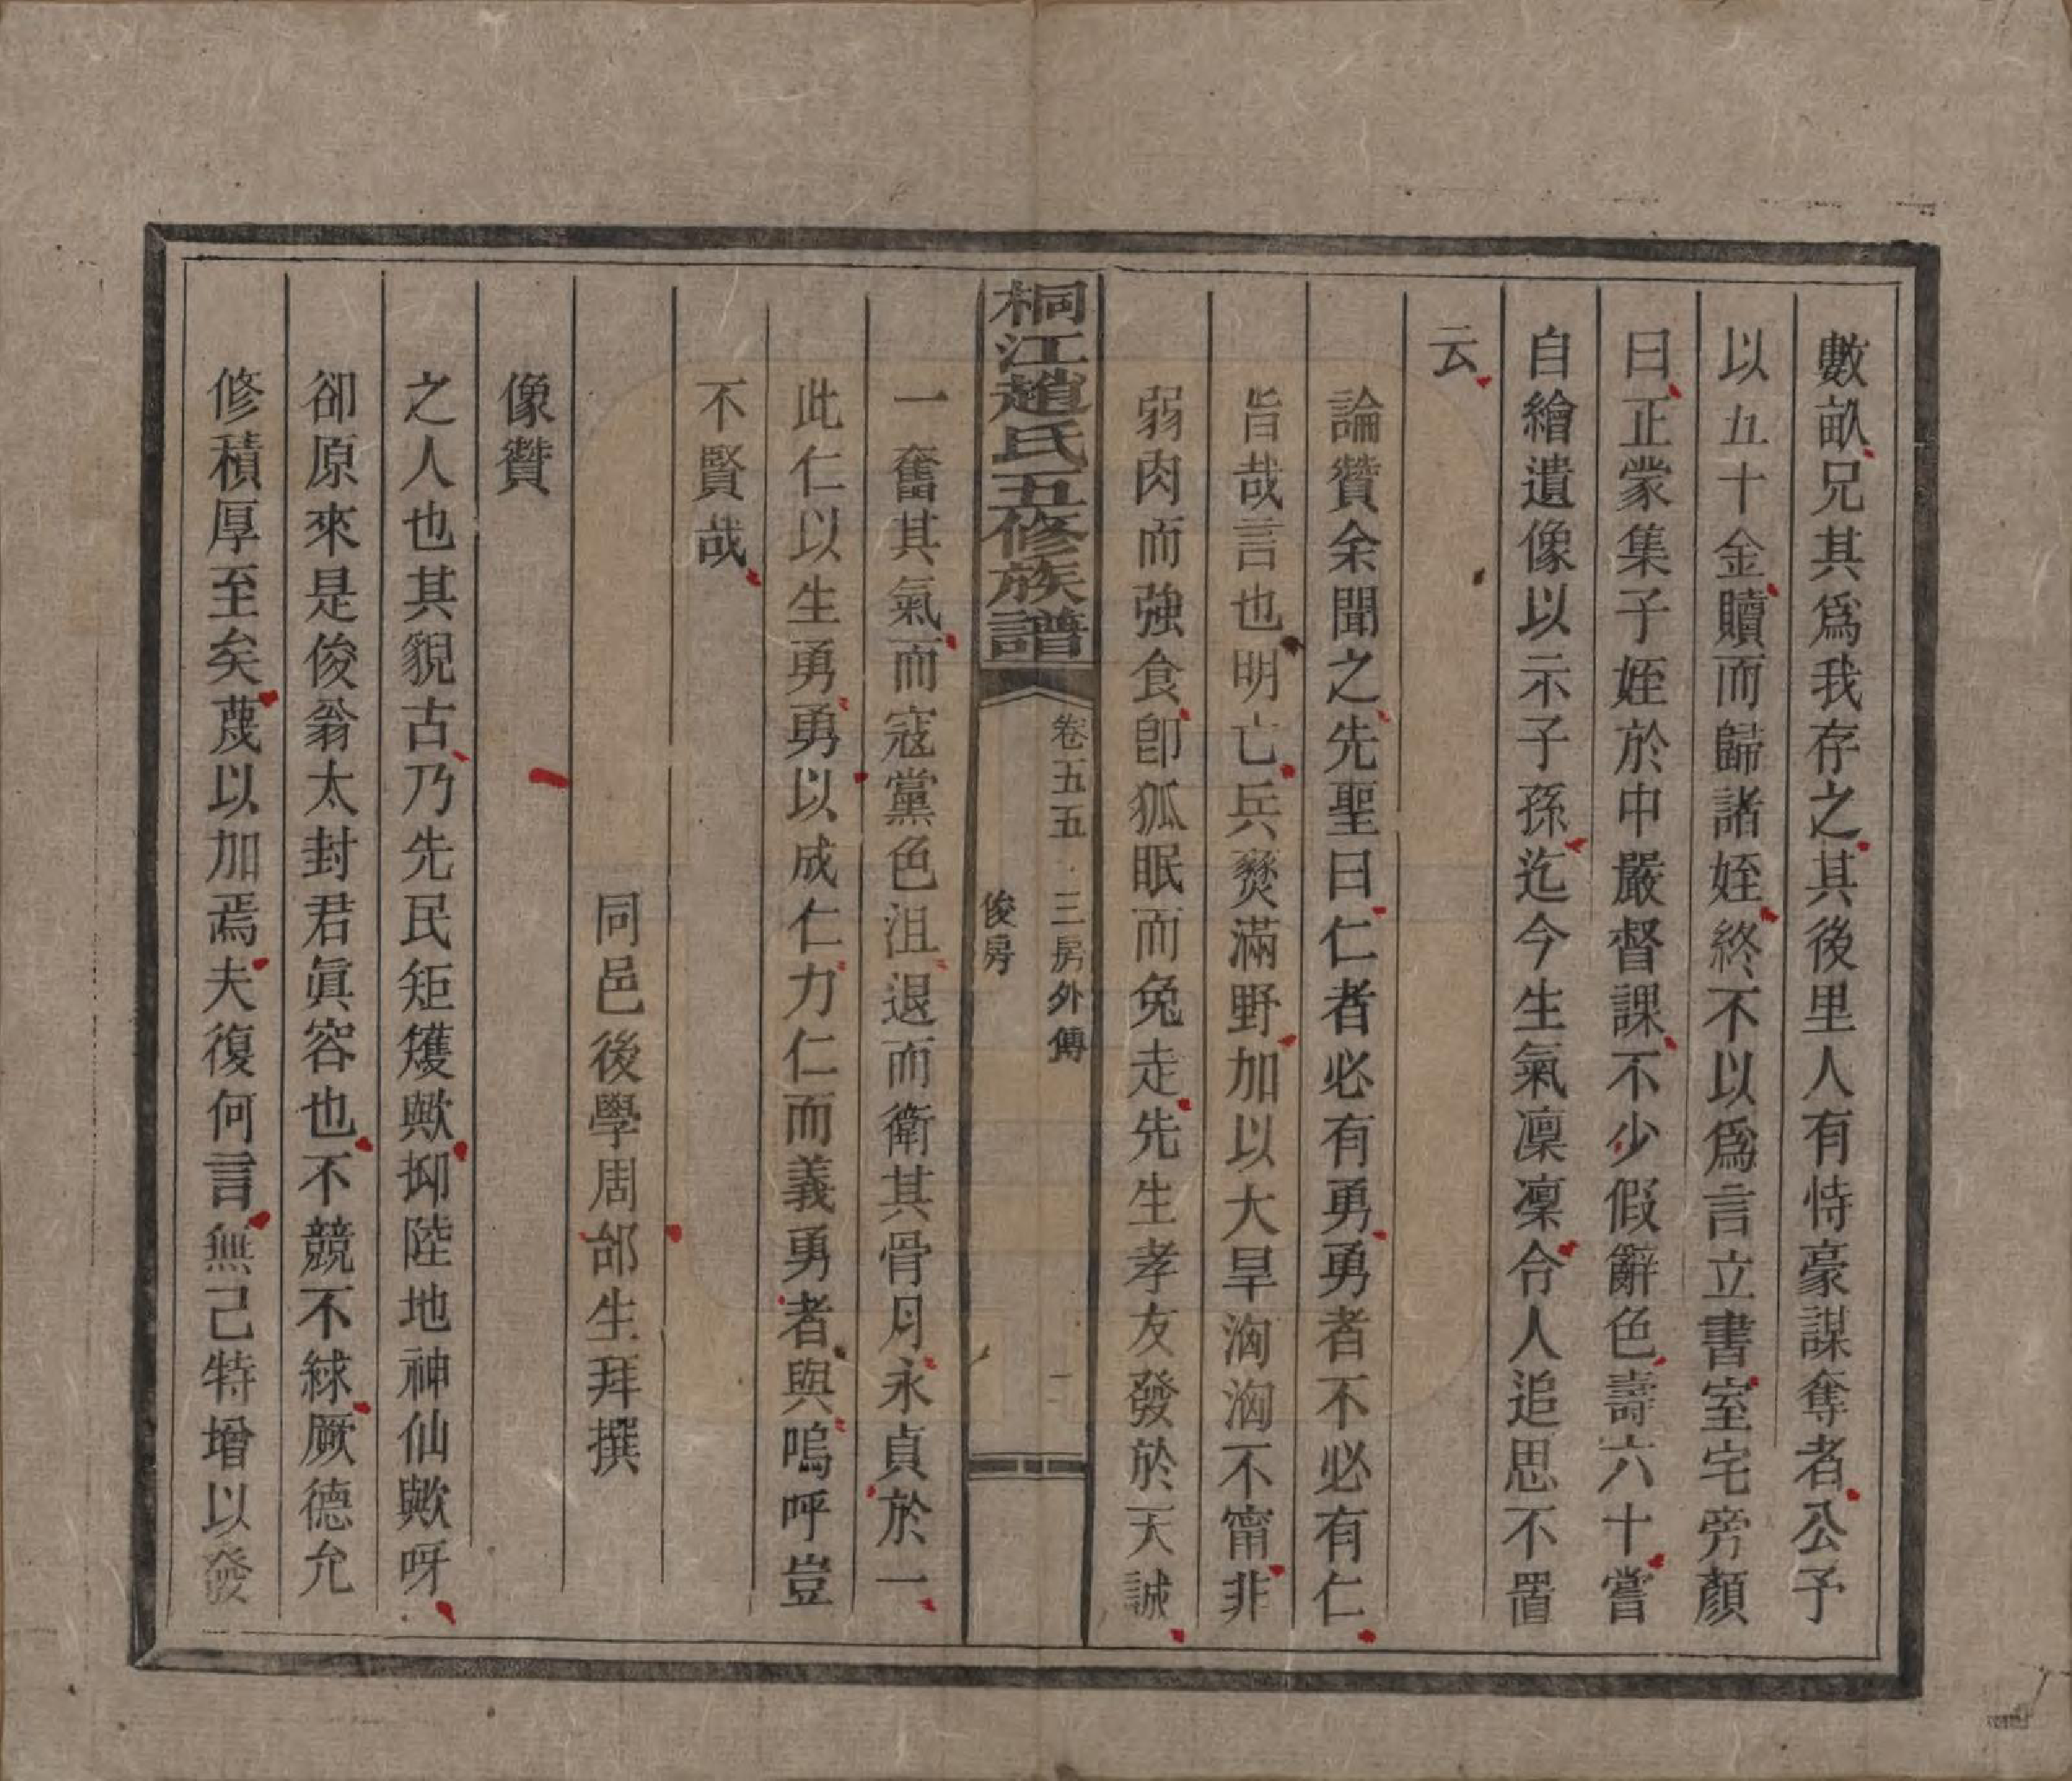 數畝兄其爲我存之其後里人有恃豪謀奪者公予
以五十金贖而歸諸姪終不以爲言立書室宅旁顏
曰正蒙集子姪於中嚴督課不少假辭色壽六十嘗
自繪遺像以示子孫迄今生氣凜凜令人追思不置
云
論贊余聞之先聖曰仁者必有勇勇者不必有仁
旨哉言也明亡兵燹滿野加以大旱洶洶不甯非
弱肉而強食卽狐眠而兔走先生孝友發於天誠
桐江趙氏五修族譜
卷五五 三房外傳 一
俊房
一奮其氣而寇黨色沮退而衛其骨月永貞於一
此仁以生勇勇以成仁力仁而義勇者與嗚呼豈
不賢哉
同邑後學周邰生拜撰
像贊
之人也其貌古乃先民矩矱歟抑陸地神仙歟呀
卻原來是俊翁太封君眞容也不競不絿厥德允
修積厚至矣蔑以加焉夫復何言無己特增以發